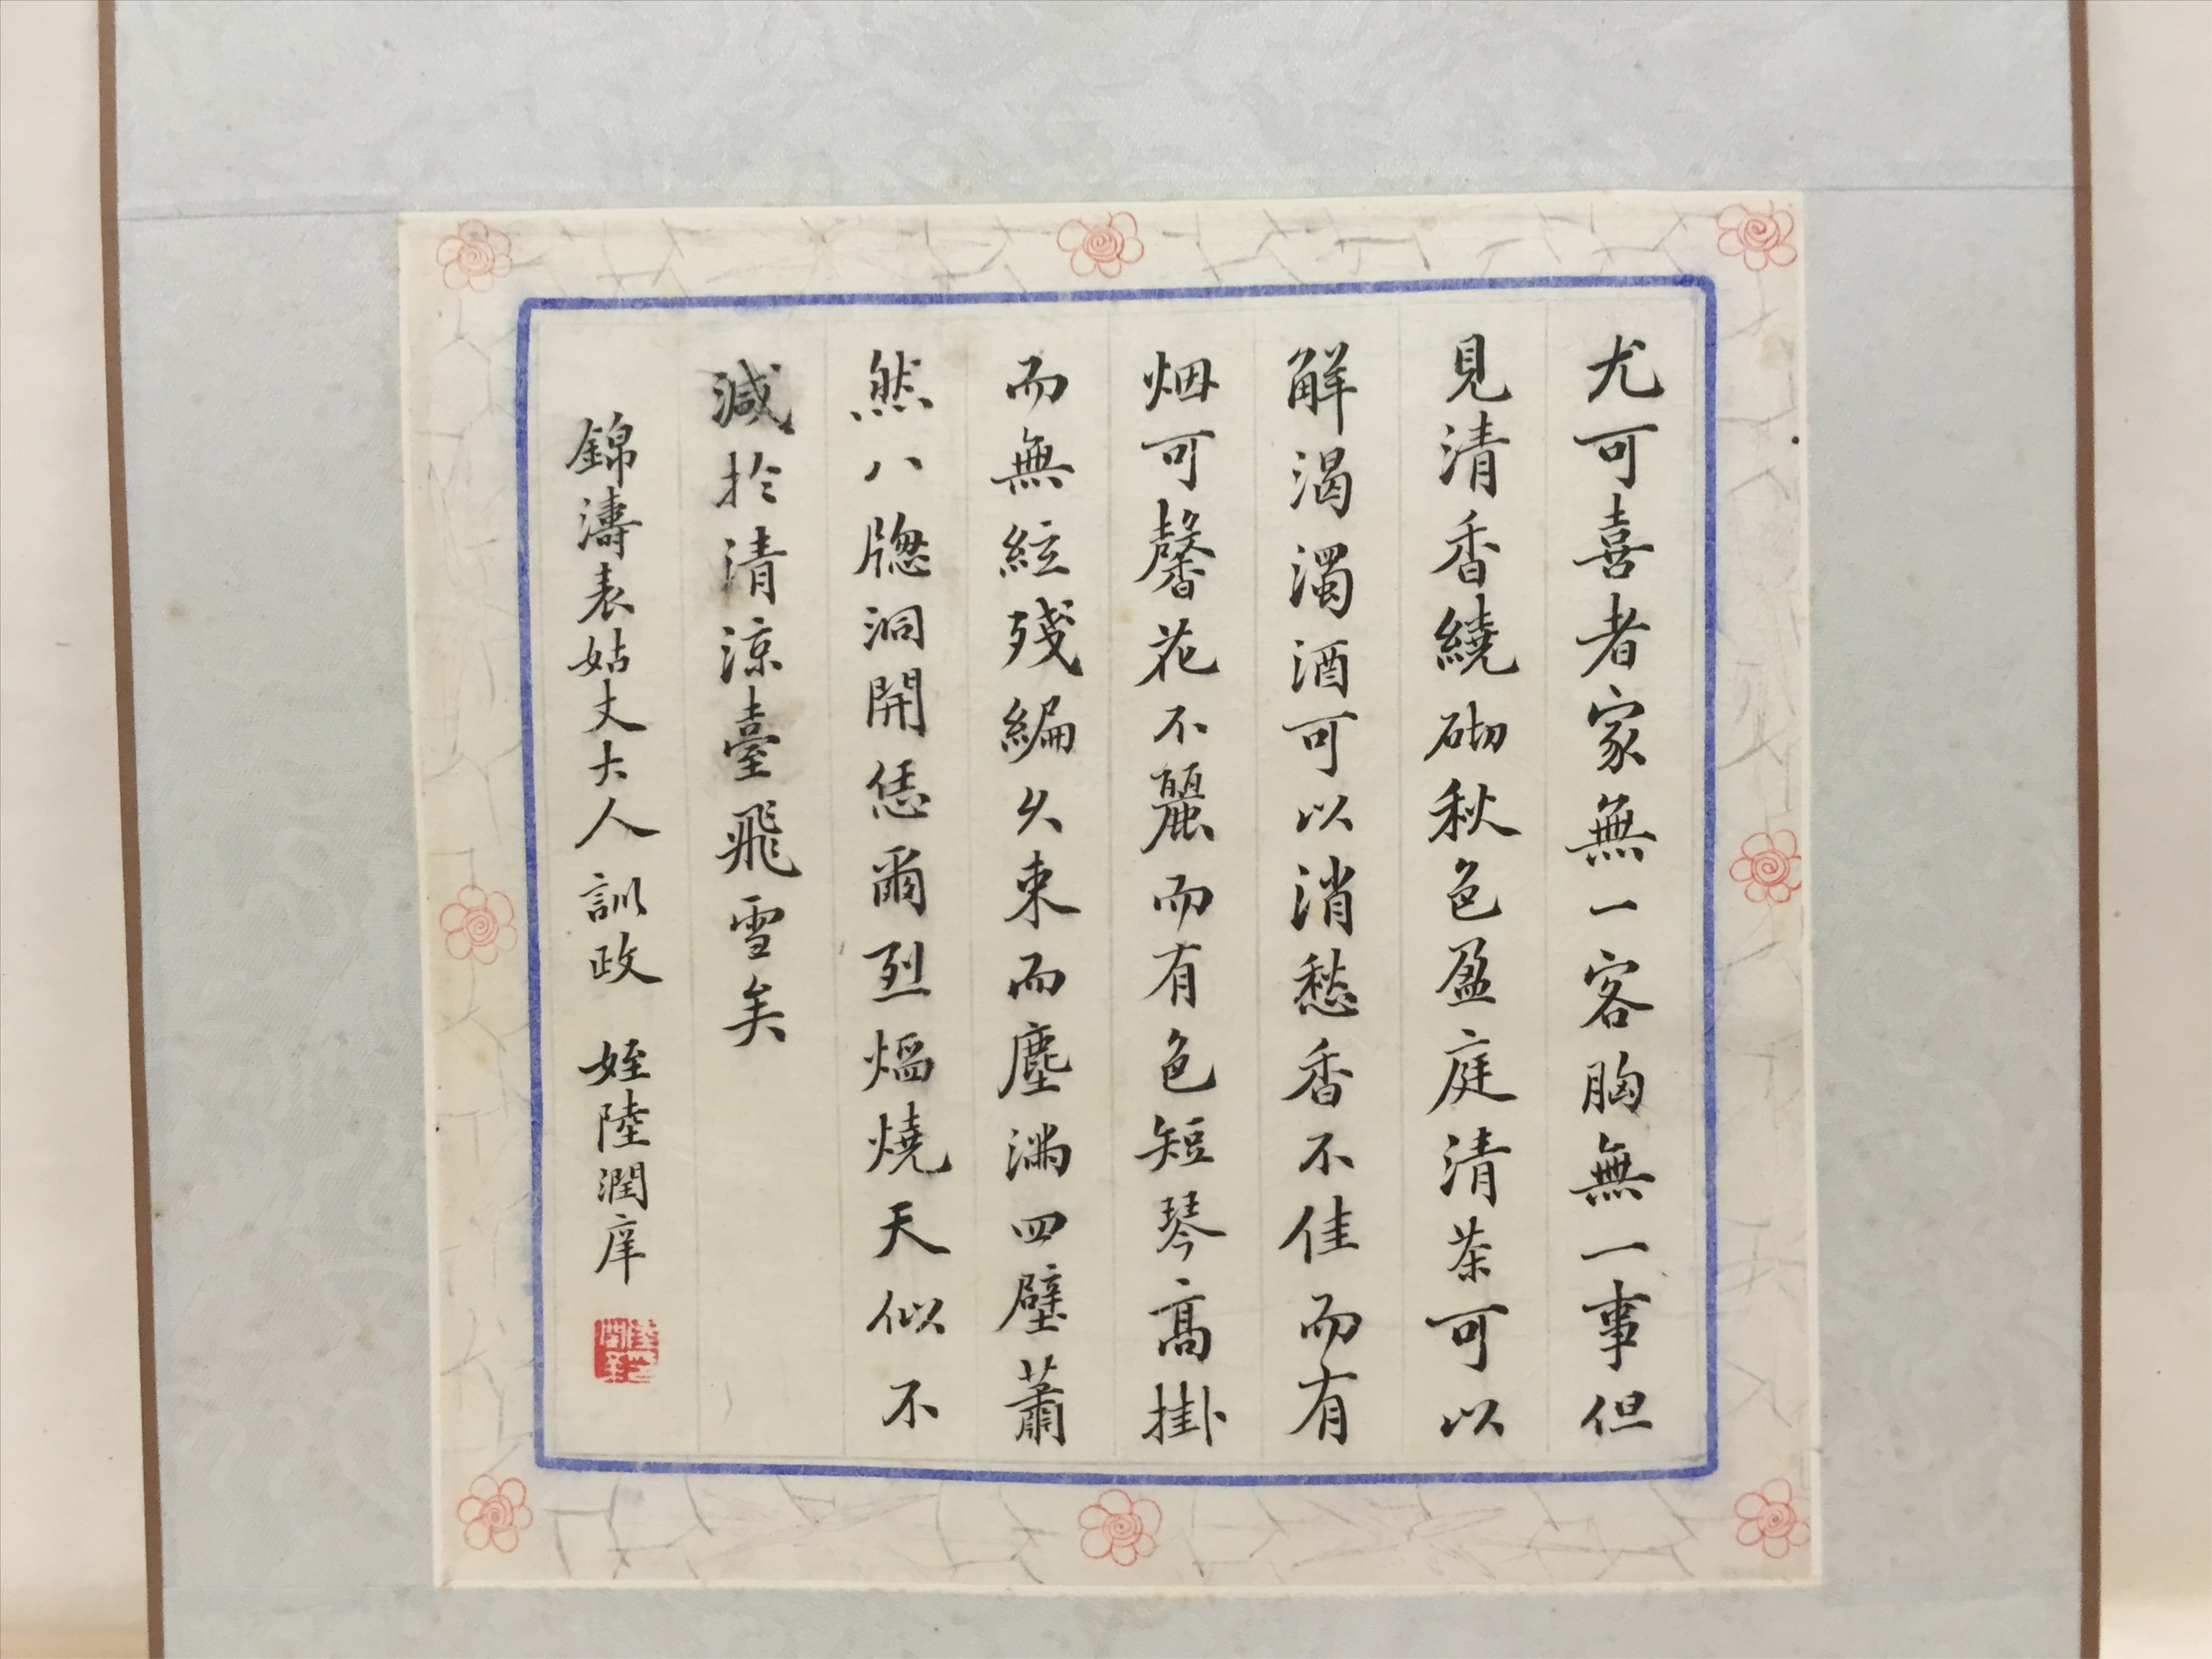 尤可喜者家無一客胸無一事但
見清香繞砌秋色盈庭清茶可以
解渴濁酒可以消愁香不佳而有
烟可馨花不麗而有色短琴高掛
而無絃殘編久束而塵滿四壁蕭
然八牕洞開恁爾烈熖燒天似不
減於清涼臺飛雪矣
錦濤表姑丈大人訓政 姪陸潤庠